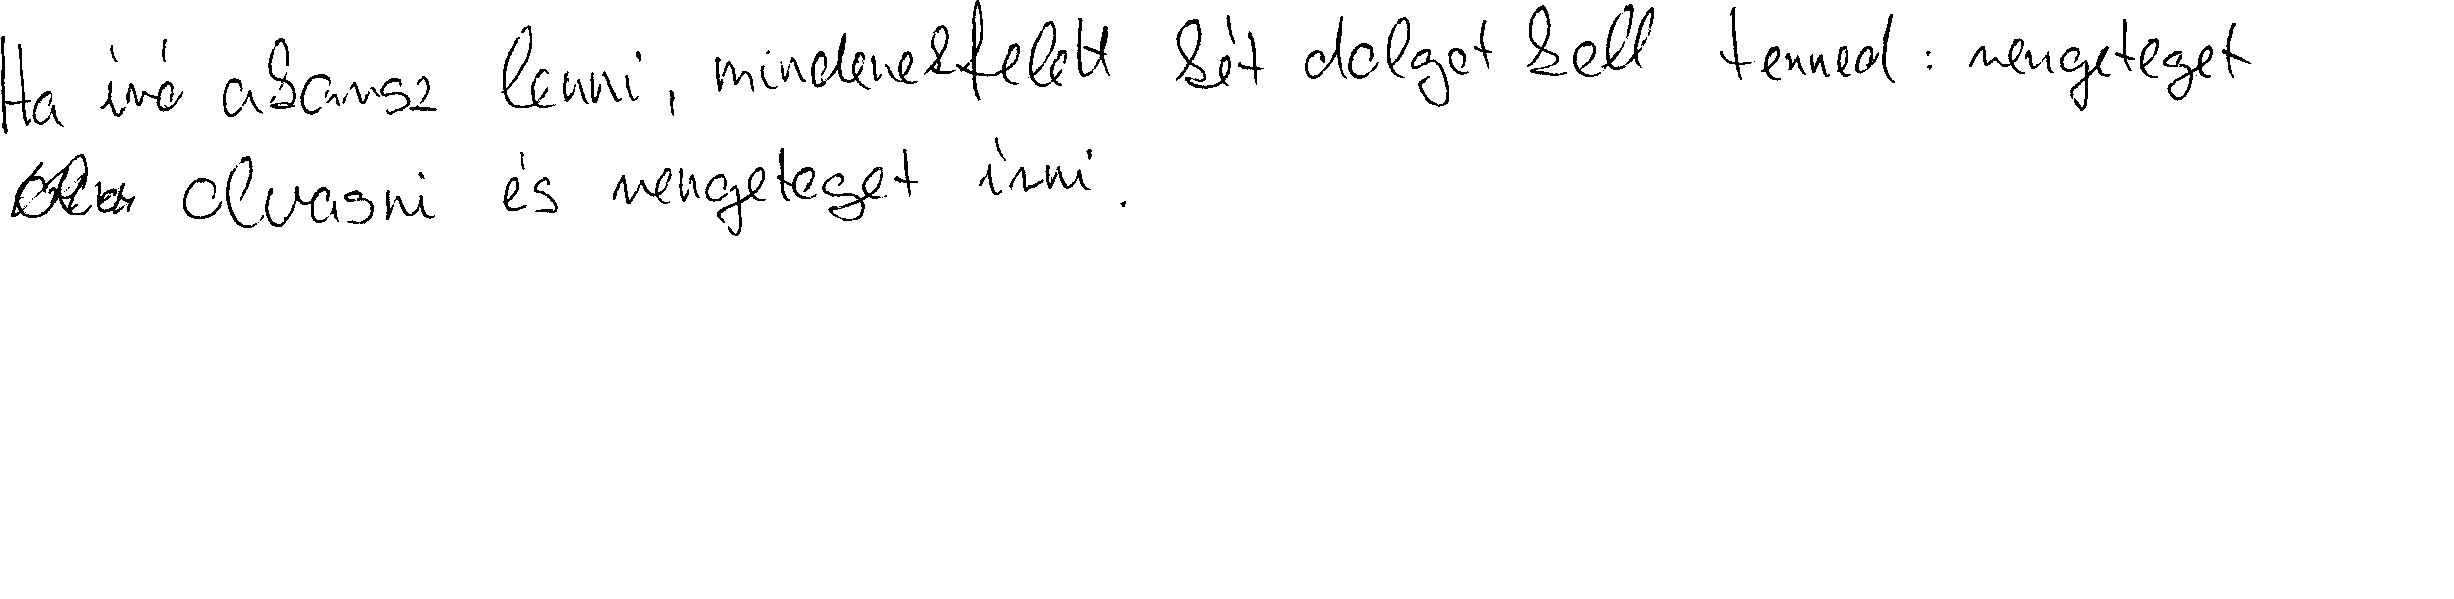 Ha író akarsz lenni, mindenekfelett két dolgot kell tenned: rengeteget
olvasni és rengeteget írni.